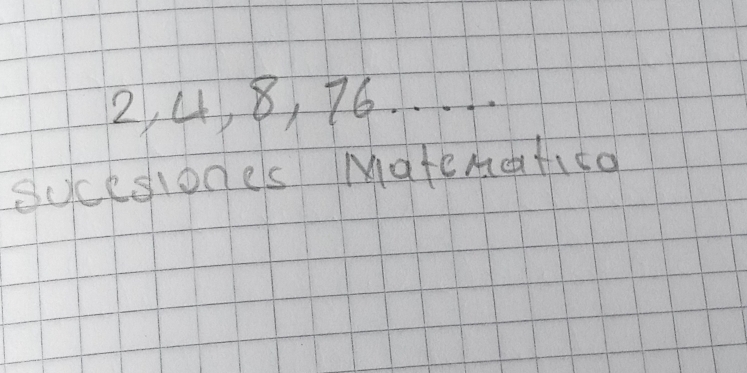 2, 4, 8, 16.....
sucesiones Matematica